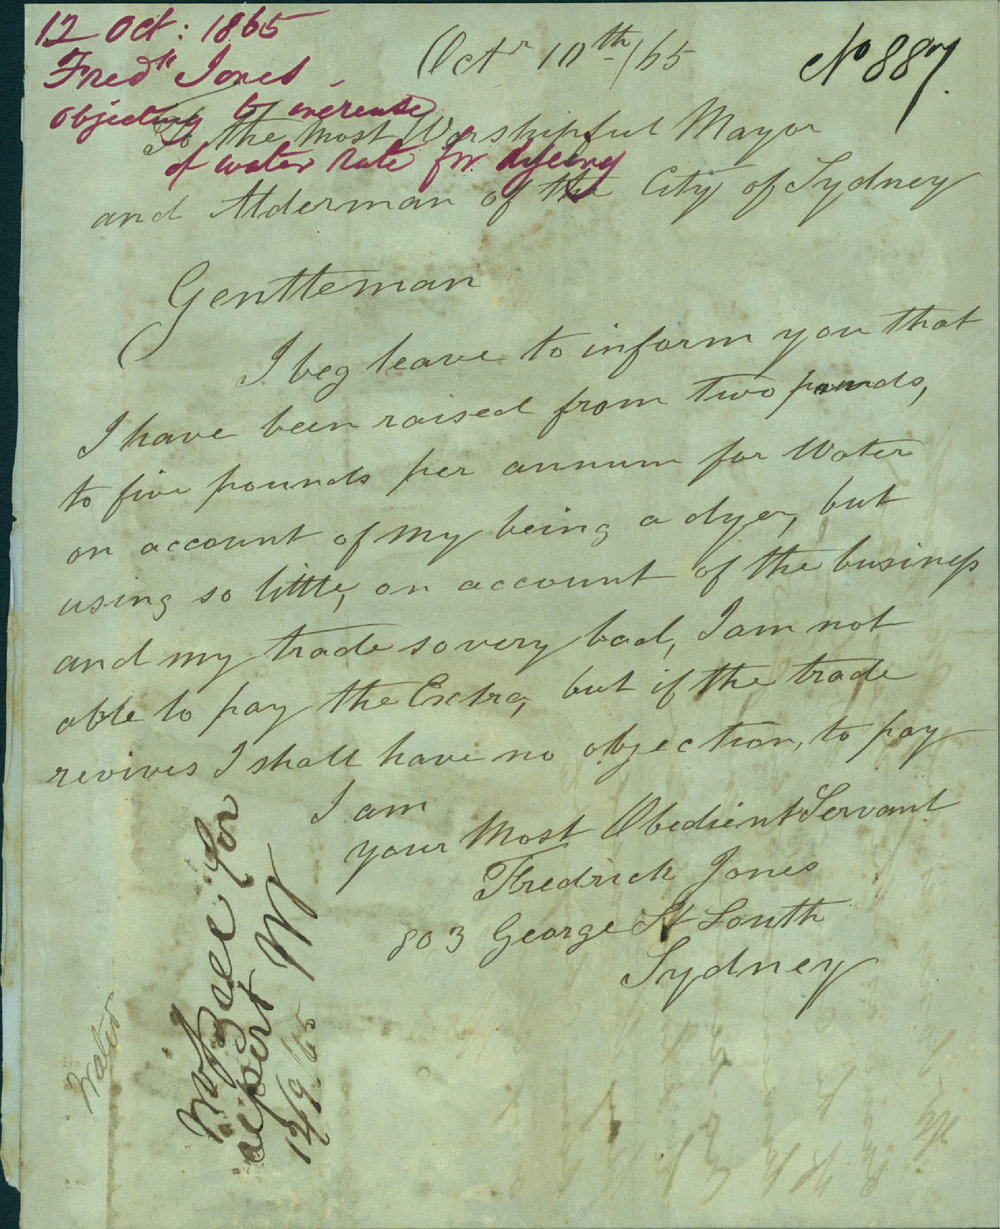 12 Oct: 1865
Fredk Jones
objecting to increase
of water rate for dyeing
Octr 10th /65
No 887.
To the Most Worshipful Mayor
and Alderman of the City of Sydney
Gentleman
I beg leave to inform you that
I have been raised from two pounds,
to five pounds per annum for Water
on account of my being a dyer, but
using so little, on account of the business
and my trade so very bad, I am not
able to pay the Extra, but if the trade
revives I shall have no objection, to pay
I am
your Most Obedient Servant
Fredrick Jones
803 George St South
Sydney
Mr Bell for
report
12/9/65
Water